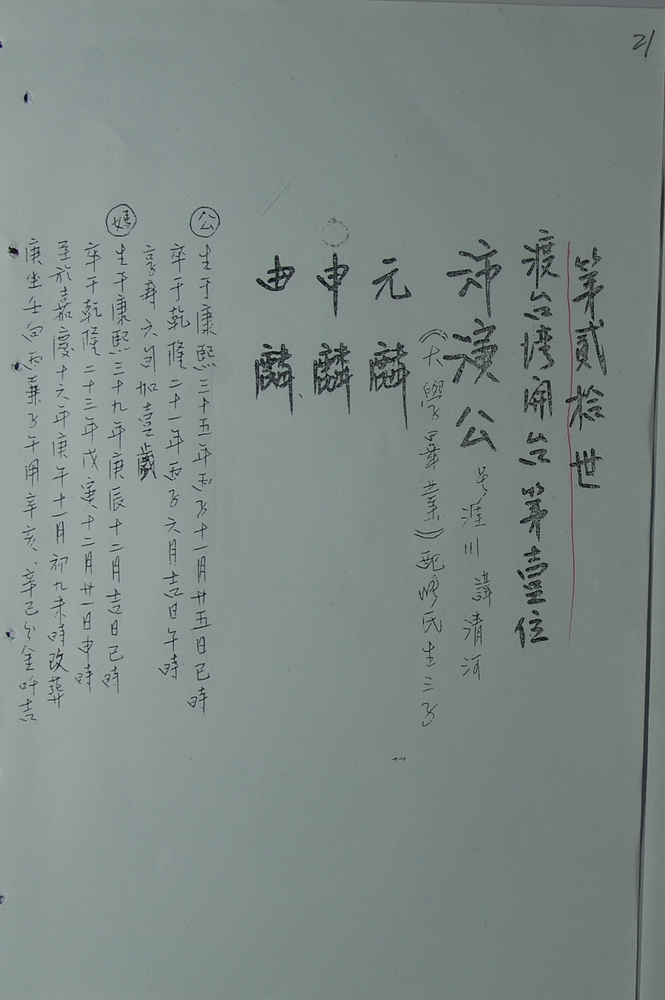 21
第貳拾世
渡台灣開台第壹位
沛濱公 号涯川 諱清河
《大學畢業》配 氏生三子
元麟
申麟
由麟
公 生于康熙三十五年丙子十一月廿五日巳時
卒于乾隆二十一年丙子六月吉日午時
享寿六旬加壹歲
媽 生于康熙三十九年庚辰十二月吉日巳時
卒于乾隆二十三年戊寅十二月廿一日申時
至於嘉慶十六年庚午十一月初九未時改葬
庚坐壬向丙兼子午用辛亥、辛巳分金吓吉